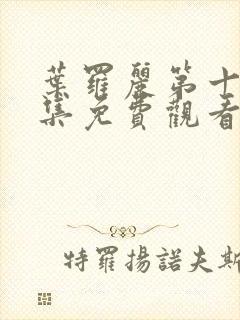 葉羅麗第十
集免費觀看
特羅揚諾夫斯